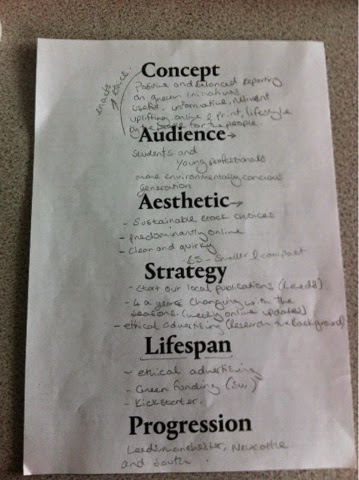 Concept
Positive and balanced reporting
on green initiatives
useful, informative, relevant
uplifting, online & print, lifestyle
by the people for the people.
Audience →
Students and
Young professionals
more environmentally concious
generation
Aesthetic →
- Sustainable stock choices
- Predominantly online
- Clear and quirky
- B5 - smaller & compact
Strategy
- Start our local publications (Leeds)
- 4 a year changing with the
seasons. (weekly online updates)
- ethical advertising (Research the background)
Lifespan
- ethical advertising
- Green funding
- Kickstarter.
Progression
Leeds, manchester, Newcastle
and South.